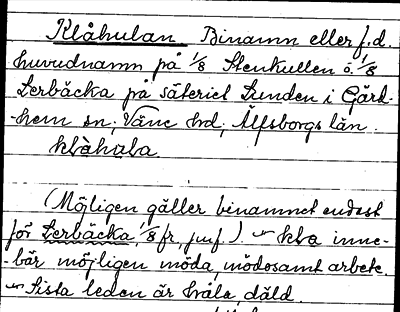 Klåhulan Binamn eller f.d.
huvudnamn på 1/8 Stenkullen o. 1/8
Lerbäcka på säteriet Lunden i Gärd-
hem sn; Väne hrd, Älfsborgs län.
klåhula.
(Möjligen gäller binamnet endast
för Lerbäcka, 1/8 fr, juf.) klå inne-
bär möjligen möda, mödosamt arbete.
Sista leden är håla, däld.